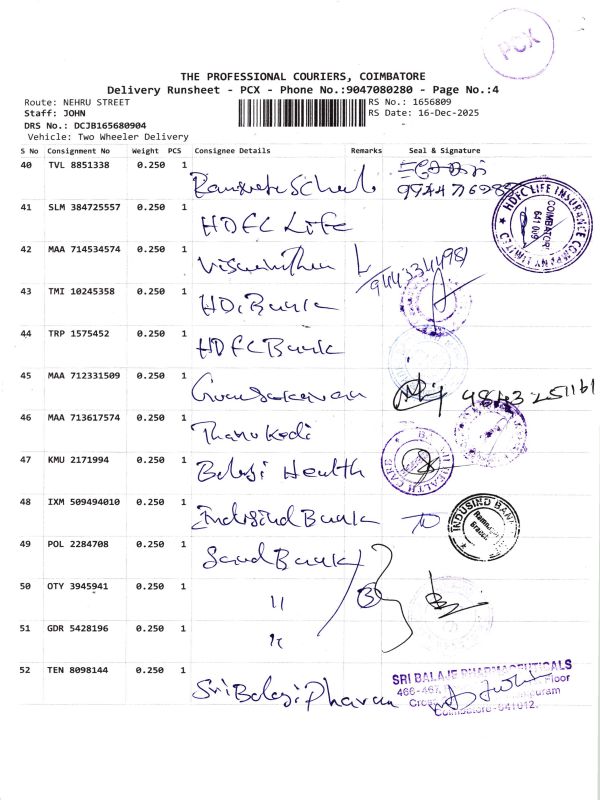 PCX
THE PROFESSIONAL COURIERS, COIMBATORE
Delivery Runsheet - PCX - Phone No.:9047080280 - Page No.:4
Route: NEHRU STREET
RS No.: 1656809
Staff: JOHN
RS Date: 16-Dec-2025
DRS No.: DCJB165680904
Vehicle: Two Wheeler Delivery
S No Consignment No Weight PCS Consignee Details Remarks Seal & Signature
40 TVL 8851338 0.250 1
41 SLM 384725557 0.250 1 HDFC Life
HDFC LIFE INSURANCE COMPANY LIMITED
COIMBATORE
641 009
42 MAA 714534574 0.250 1
43 TMI 10245358 0.250 1 Bank
44 TRP 1575452 0.250 1 HDFC Bank
45 MAA 712331509 0.250 1
46 MAA 713617574 0.250 1
47 KMU 2171994 0.250 1 Balaji Health
48 IXM 509494010 0.250 1 Indusind Bank
INDUSIND BANK
Branch
49 POL 2284708 0.250 1 Bank
50 OTY 3945941 0.250 1 "
51 GDR 5428196 0.250 1 "
52 TEN 8098144 0.250 1 Sri Balaji
SRI BALAJE PHARMACEUTICALS
Floor
Coimbatore-641012.